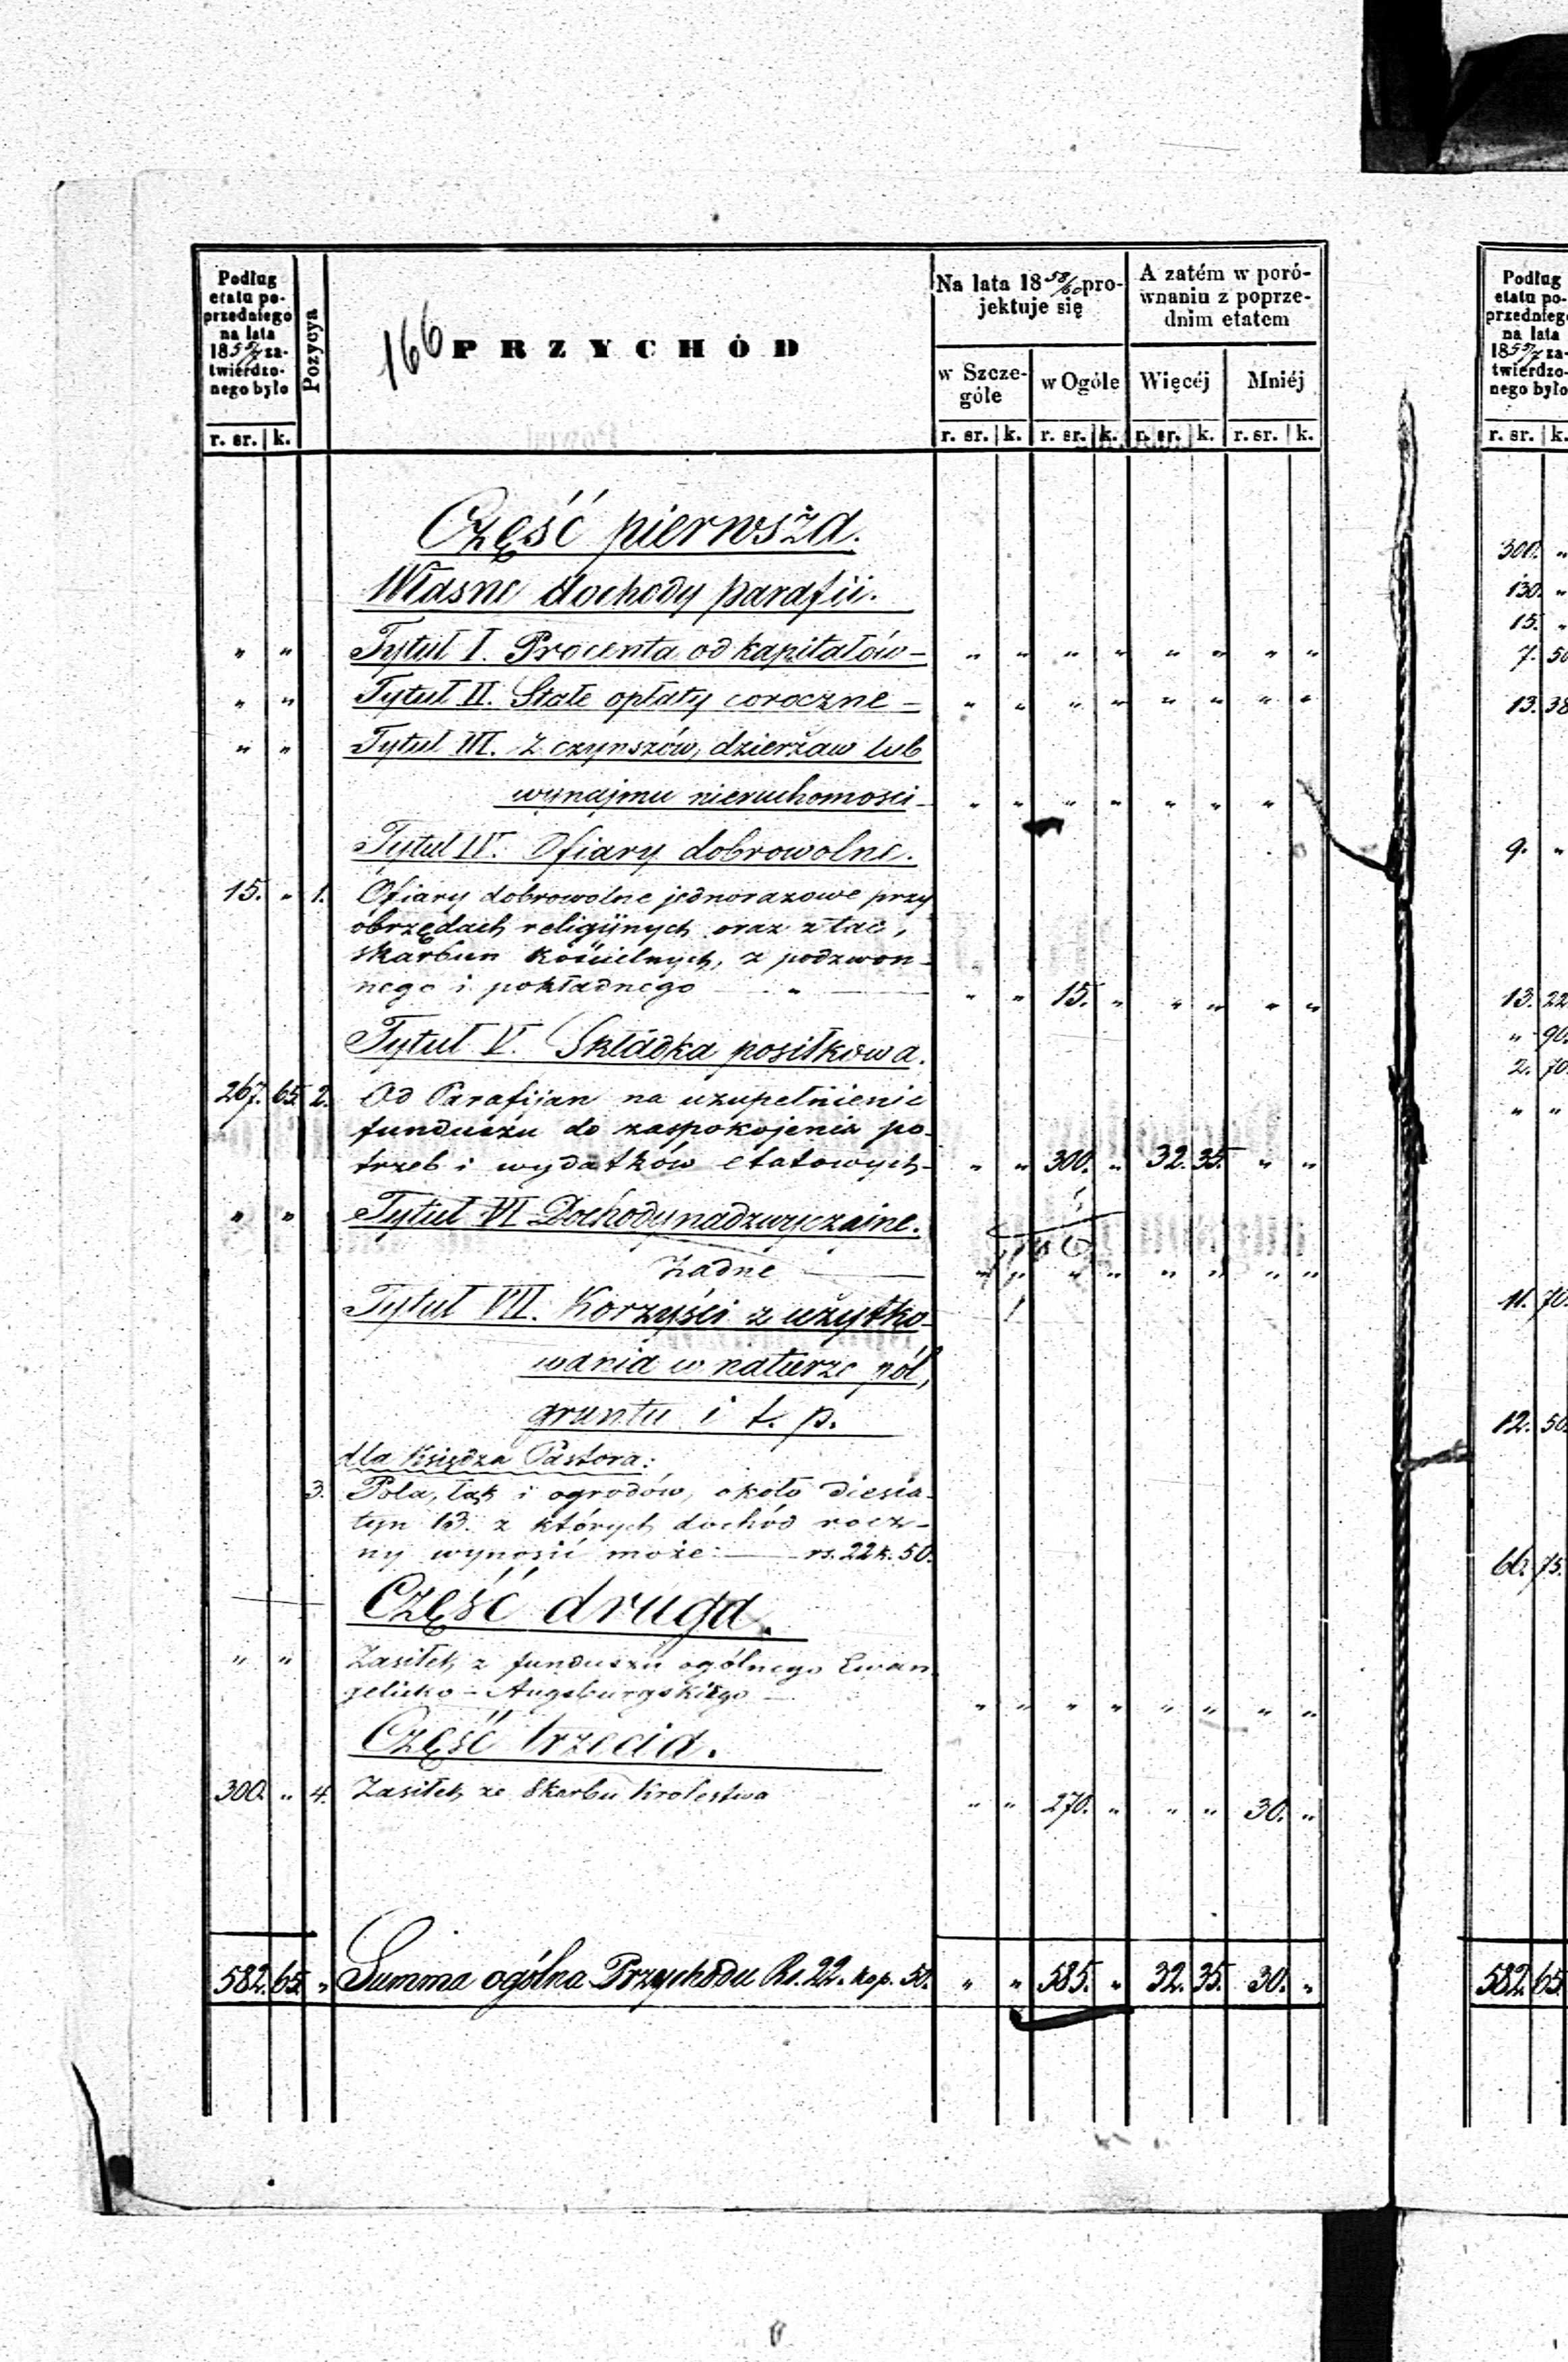 Podług etatu poprzedniego na lata 1855/7 zatwierdzonego było
Pozycya
166 PRZYCHÓD
Na lata 1858/60 projektuje się
A zatém w porównaniu z poprzednim etatem
w Szczególe w Ogóle Więcéj Mniéj
r. sr. k. r. sr. k. r. sr. k. r. sr. k. r. sr. k.
Część pierwsza.
Własne dochody parafii.
" " Tytuł I. Procenta od kapitałów – " " " " " " " "
" " Tytuł II. Stałe opłaty coroczne – " " " " " " " "
" " Tytuł III. Z czynszów, dzierżaw lub
wynajmu nieruchomości – " " " " " " "
Tytuł IV. Ofiary dobrowolne.
15. " 1. Ofiary dobrowolne jednorazowe przy
obrzędach religijnych oraz z tac,
skarbun kościelnych, z podzwon-
nego i pokładnego — " — " " 15. " " " " "
Tytuł V. Składka posiłkowa.
267. 65. 2. Od Parafijan na uzupełnienie
funduszu do zaspokojenia po-
trzeb i wydatków etatowych – " " 300. " 32. 35. " "
" " Tytuł VI Dochody nadzwyczajne.
Żadne — " " " " " " " "
Tytuł VII. Korzyści z użytko-
wania w naturze pól,
gruntu i t. p.
dla Księdza Pastora:
3. Pola, łąk i ogrodów, około diesia-
tyn 13. z których dochód rocz-
ny wynosić może: — rs. 22 k. 50.
Część druga.
" " Zasiłek z funduszu ogólnego Ewan
gelicko – Augsburgskiego — " " " " " " " "
Część trzecia.
300. " 4. Zasiłek ze Skarbu Krolestwa " " 270. " " " 30. "
582. 65. " Summa ogólna Przychodu Rs. 22. kop. 50. " " 585. " 32. 35. 30. "
Podług etatu po- przedniego na lata 1855/7 za- twierdzo- nego było
r. sr. k.
300. "
130. "
15. "
7. 50
13. 38
9. "
13. 22
" 90.
2. 70.
" "
11. 70.
12. 50.
582. 65.